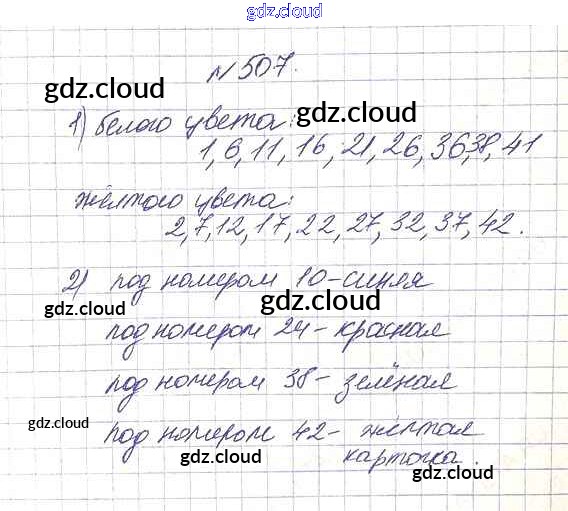 gdz.cloud
№507.
gdz.cloud
gdz.cloud
1) белого цвета:
1, 6, 11, 16, 21, 26, 36, 38, 41
жёлтого цвета:
2, 7, 12, 17, 22, 27, 32, 37, 42.
2) под номером 10-синяя
gdz.cloud
gdz.cloud
под номером 24-красная
под номером 38-зелёная
gdz.cloud
под номером 42-жёлтая
карточка.
gdz.cloud
gdz.cloud